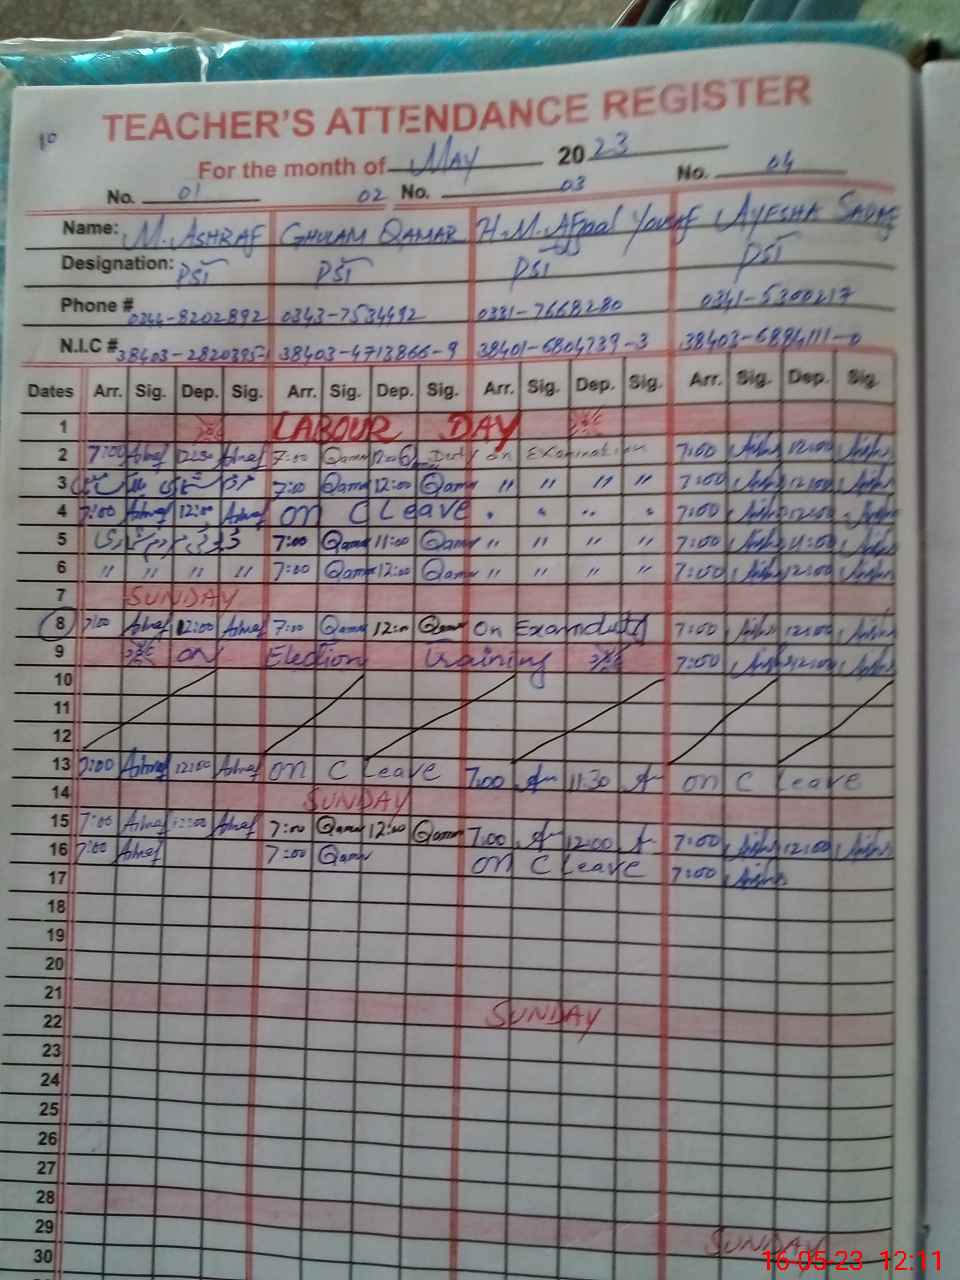 10
TEACHER'S ATTENDANCE REGISTER
For the month of May 2023
No. 01 02 No. 03 No. 04
Name: M. ASHRAF GHULAM QAMAR H.M. Afzaal Yousaf AYESHA SADAF
Designation: PST PST PST PST
Phone # 0344-8202892 0343-7534492 0331-7668280 0341-5300217
N.I.C # 38403-2820395-1 38403-4713866-9 38401-6804739-3 38403-6894111-0
Dates Arr. Sig. Dep. Sig. Arr. Sig. Dep. Sig. Arr. Sig. Dep. Sig. Arr. Sig. Dep. Sig.
1 LABOUR DAY
2 7:00 Ashraf 12:00 Ashraf 7:00 Qamar 12:00 Duty on Examination 7:00 12:00
3 7:00 Qamar 12:00 Qamar " " " " 7:00 12:00
4 7:00 Ashraf 12:00 Ashraf on C Leave " " " " 7:00 12:00
5 7:00 Qamar 11:00 Qamar " " " " 7:00 11:00
6 " " " " 7:00 Qamar 12:00 Qamar " " " " 7:00 12:00
7 SUNDAY
8 7:00 Ashraf 12:00 Ashraf 7:00 Qamar 12:00 Qamar On Exam duty 7:00 12:00
9 on Election training 7:00 12:00
10
11
12
13 7:00 Ashraf 12:00 Ashraf on C Leave 7:00 11:30 on C Leave
14 SUNDAY
15 7:00 Ashraf 12:00 Ashraf 7:00 Qamar 12:00 Qamar 7:00 12:00 7:00 12:00
16 7:00 Ashraf 7:00 Qamar on C Leave 7:00
17
18
19
20
21 SUNDAY
22
23
24
25
26
27
28 SUNDAY
29
30
16-05-23 12:11